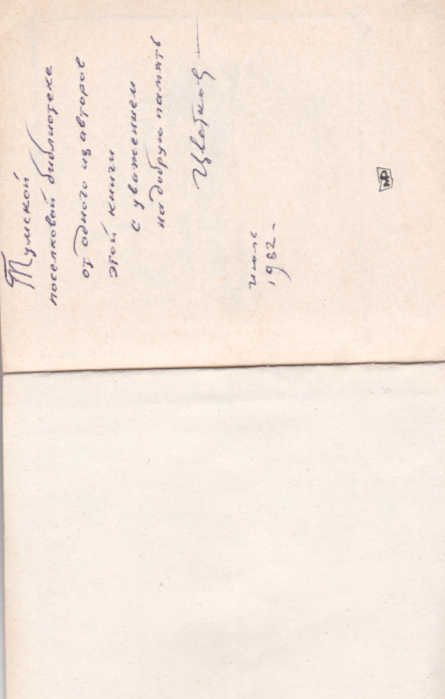 Тумской
поселковой библиотеке
от одного из авторов
этой книги
с уважением
на добрую память
Цветков
июль
1982.
МР